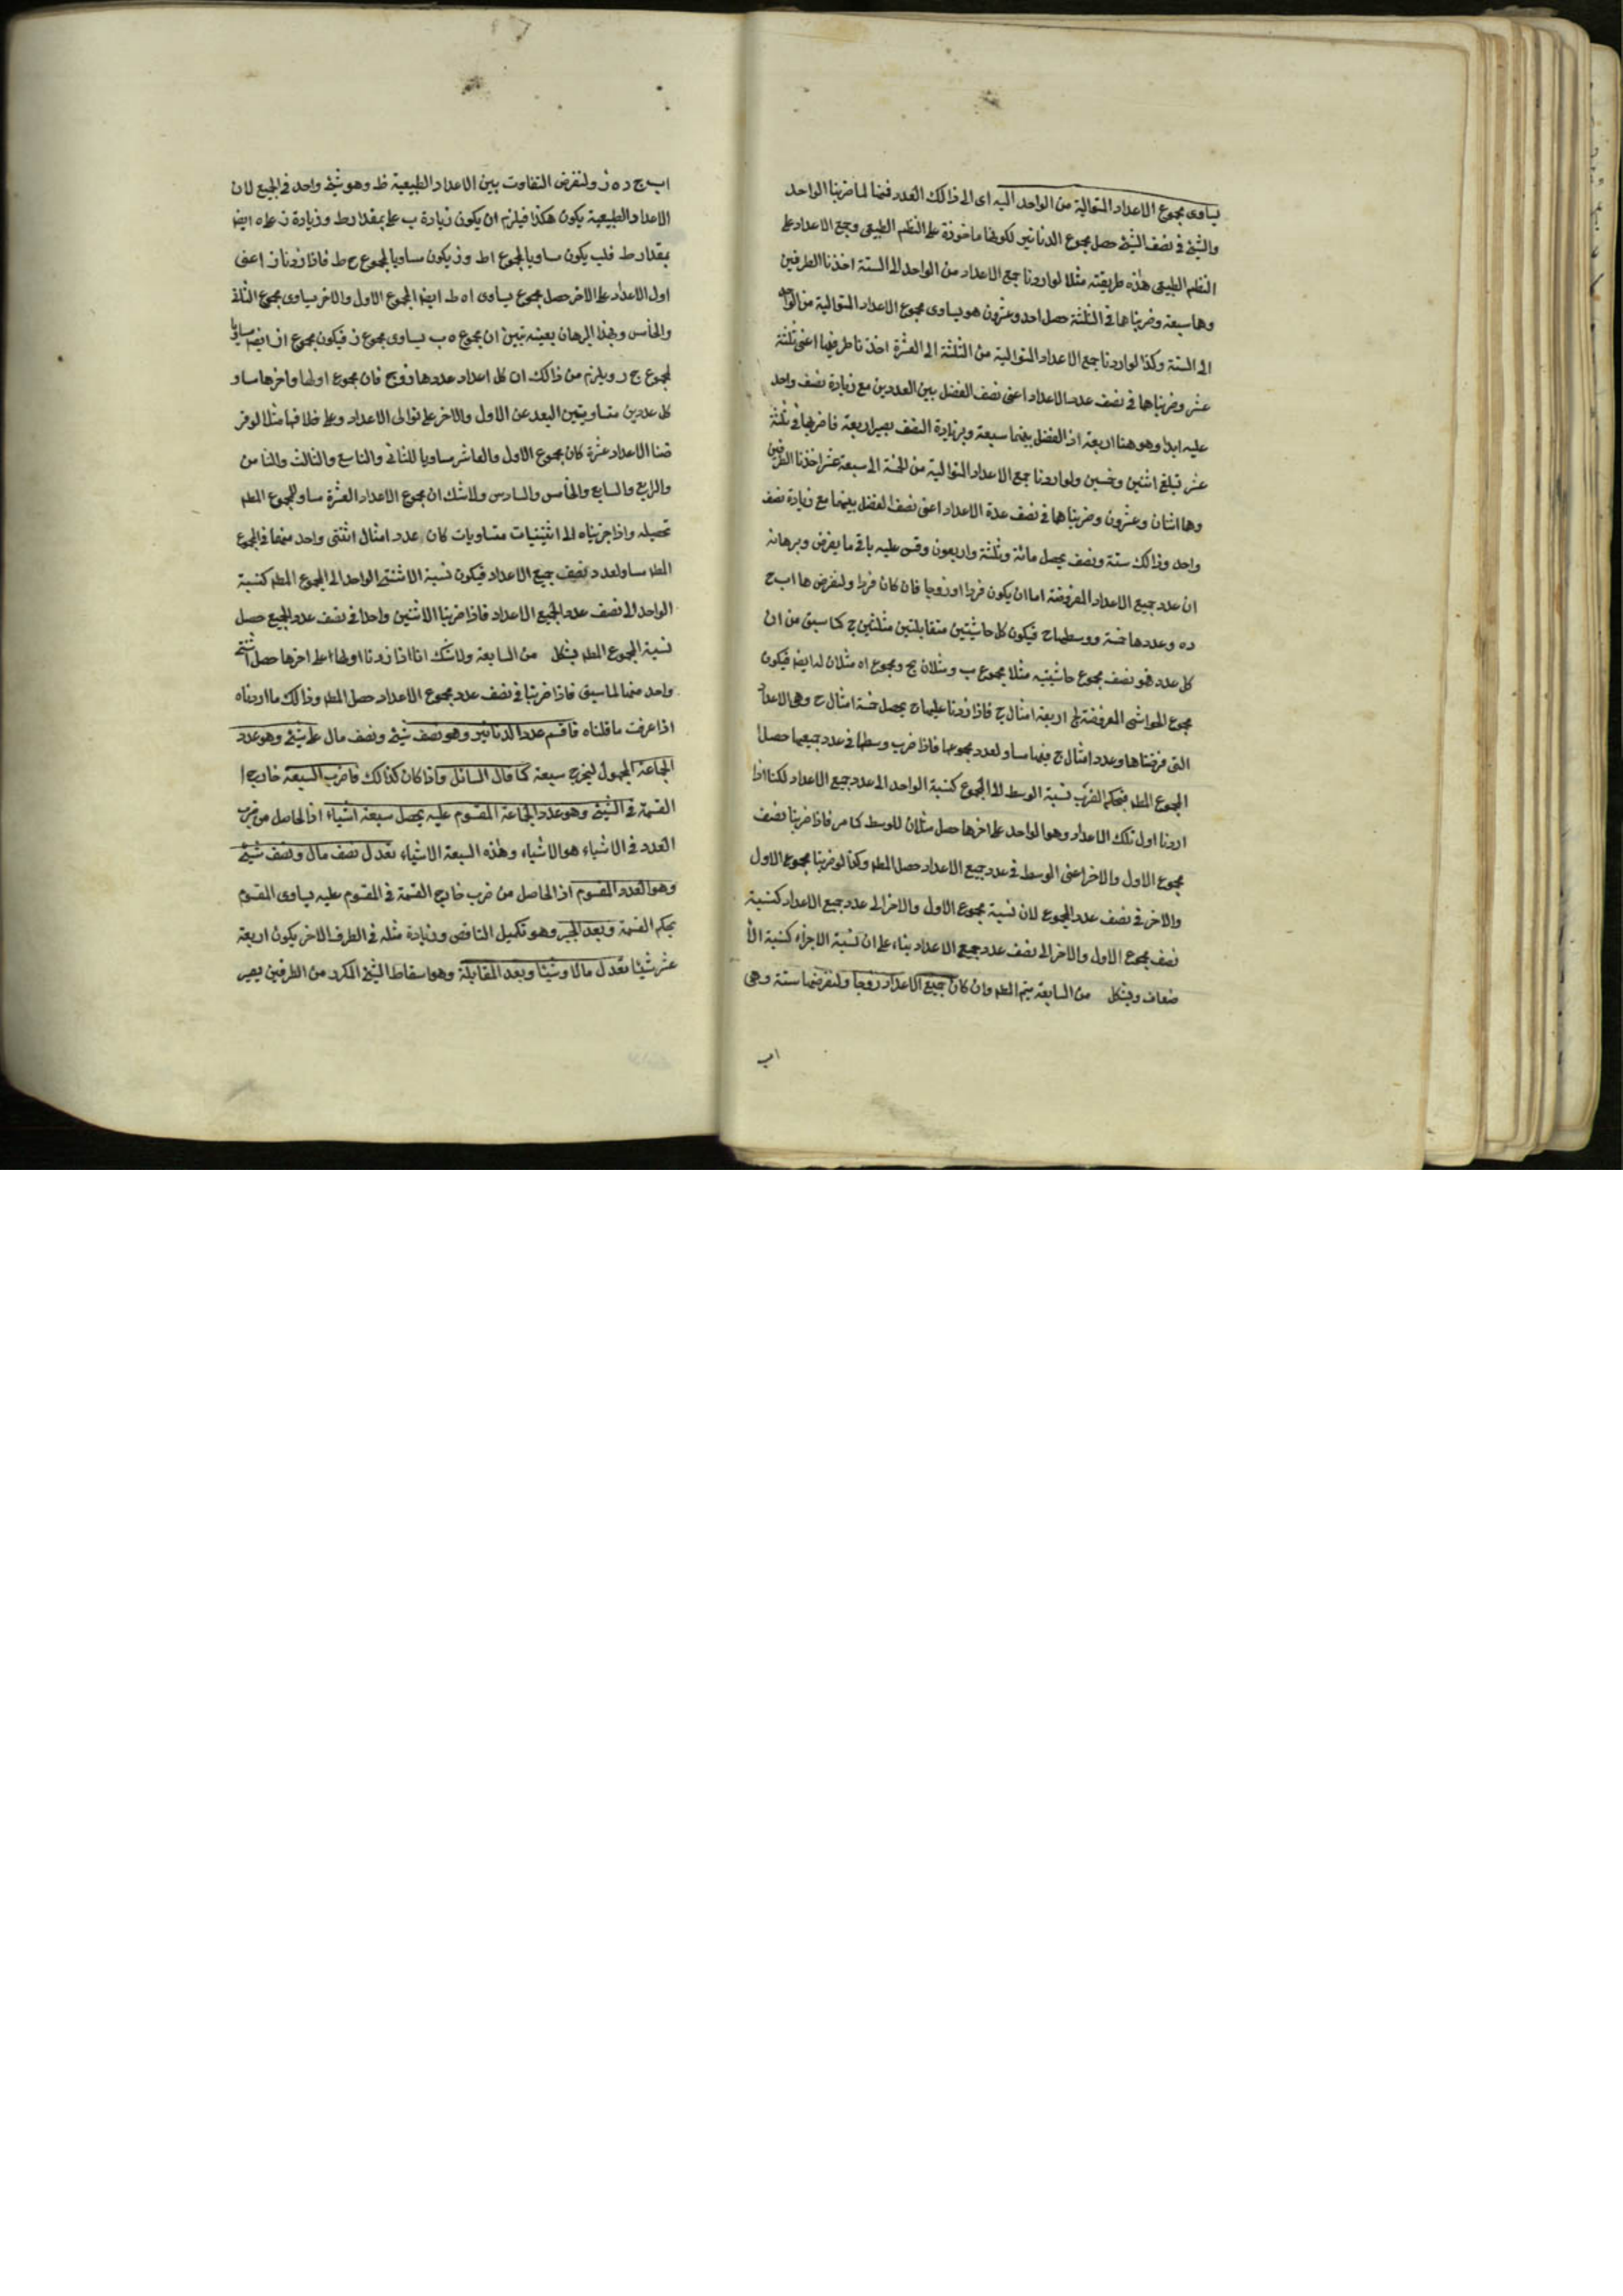 يساوى مجموع الاعداد المتوالية من الواحد اليه اى الى ذالك العدد فيما لما ضربنا الواحد
والشئ فى نصف الشئ حصل مجموع الدنانير لكونها ماخوذة على النظم الطبيعى وجمع الاعداد على
النظم الطبيعى هذه طريقته مثلا لو اردنا جمع الاعداد من الواحد الى الستة اخذنا الطرفين
وهما سبعة وضربناهما فى الثلثة حصل احد وعشرون هو يساوى مجموع الاعداد المتوالية من الواحد
الى الستة وكذا لو اردنا جمع الاعداد المتوالية من الثلثة الى العشرة اخذنا طرفيها اعنى ثلثة
عشر وضربناها فى نصف عدد الاعداد اعنى نصف الفضل بين العددين مع زيادة نصف واحد
عليه ابدا وهو هنا اربعة اذ الفضل بينهما سبعة وبزيادة النصف يصير اربعة فاضربها فى ثلثة
عشر تبلغ اثنين وخمسين ولو اردنا جمع الاعداد المتوالية من الخمسة الى سبعة عشر اخذنا الطرفين
وهما اثنان وعشرون وضربناها فى نصف عدة الاعداد اعنى نصف الفضل بينهما مع زيادة نصف
واحد وذالك ستة ونصف يحصل مائة وثلثة واربعون وقس عليه باقى ما يفرض وبرهانه
ان عدد جميع الاعداد المفروضة اما ان يكون فردا او زوجا فان كان فردا ولنفرضها ا ب ج
د ه وعددها خمسة ووسطها ح فيكون كل حاشيتين متقابلتين مثلتين ج كما سبق من ان
كل عدد هو نصف مجموع حاشيتيه مثلا مجموع ب د مثلان لج ومجموع ا ه مثلان له ايضا فيكون
مجموع الحواشى المفروضة لج اربعة امثال ج فاذا زدنا عليها ج يحصل خمسة امثال ج وهى الاعداد
التى فرضناها وعدد امثال ج فيها مساو لعدد مجموعها فاذا ضرب وسطها فى عدد جميعها حصل
المجموع المطم فبحكم الضرب نسبة الوسط الى المجموع كنسبة الواحد الى عدد جميع الاعداد لكنا اذا
زدنا اول تلك الاعداد وهو الواحد على اخرها حصل مثلان للوسط كما مر فاذا ضربنا نصف
مجموع الاول والاخر اعنى الوسط فى عدد جميع الاعداد حصل المطم وكذا لو ضربنا مجموع الاول
والاخر فى نصف عدد المجموع لان نسبة مجموع الاول والاخر الى عدد جميع الاعداد كنسبة
نصف مجموع الاول والاخر الى نصف عدد جميع الاعداد بناء على ان نسبة الاجزاء كنسبة الا
ضعاف وبشكل من السابعة يتم المطم وان كان جميع الاعداد زوجا ولنفرضها ستة وهى
اب
اب ج د ه ز ولنفرض التفاوت بين الاعداد الطبيعية ط وهو شئ واحد فى الجميع لان
الاعداد الطبيعية يكون هكذا فيلزم ان يكون زيادة ب على بمقدار ط وزيادة ز على ه ايضا
بمقدار ط فلب يكون مساويا لمجموع ا ط وز يكون مساويا لمجموع ح ط فاذا زدنا ز اعنى
اول الاعداد على الاخر حصل مجموع يساوى ا ه ط ايضا المجموع الاول والاخر يساوى مجموع الثانى
والخامس وبهذا البرهان بعينه تبين ان مجموع ه ب يساوى مجموع ز فيكون مجموع ا ز ايضا مساويا
لمجموع ج ر ويلزم من ذالك ان كل اعداد عددها زوج فان مجموع اولها واخرها مساو
كل عددين متساويتين البعد عن الاول والاخر على توالى الاعداد وعلى خلافها مثلا لو فر
ضنا الاعداد عشرة كان مجموع الاول والعاشر مساويا للثانى والتاسع والثالث والثامن
والرابع والسابع والخامس والسادس ولاشك ان مجموع الاعداد العشرة مساو للمجموع المطم
تحصيله واذا جزيناه الى اثنينيات متساويات كان عدد امثال اثنتى واحد منها فى المجموع
المطم مساو لعدد نصف جميع الاعداد فيكون نسبة الاثنتى الواحد الى المجموع المطم كنسبة
الواحد الى نصف عدد الجميع الاعداد فاذا ضربنا الاثنين واحدا فى نصف عدد الجميع حصل
نسبة المجموع المطم بشكل من السابعة ولاشك انا اذا زدنا اولها على اخرها حصل اثنتى
واحد منها لما سبق فاذا ضربنا فى نصف عدد مجموع الاعداد حصل المطم وذالك ما اردناه
اذا عرفت ما قلناه فاقسم عدد الدنانير وهو نصف شئ ونصف مال على شئ وهو عدد
الجماعة المجهول ليخرج سبعة كما قال السائل واذا كان كذالك فاضرب السبعة خارج ا
القسمة فى الشئ وهو عدد الجماعة المقسوم عليه يحصل سبعة اشياء اذ الحاصل من ضرب
العدد فى الاشياء هو الاشياء وهذه السبعة الاشياء تعدل نصف مال ونصف شئ
وهو العدد المقسوم اذ الحاصل من ضرب خارج القسمة فى المقسوم عليه يساوى المقسوم
بحكم القسمة وبعد الجبر وهو تكميل الناقص وزيادة مثله فى الطرف الاخر يكون اربعة
عشر شيئا تعدل مالا وشيئا وبعد المقابلة وهو اسقاط الشئ المكرر من الطرفين يصير